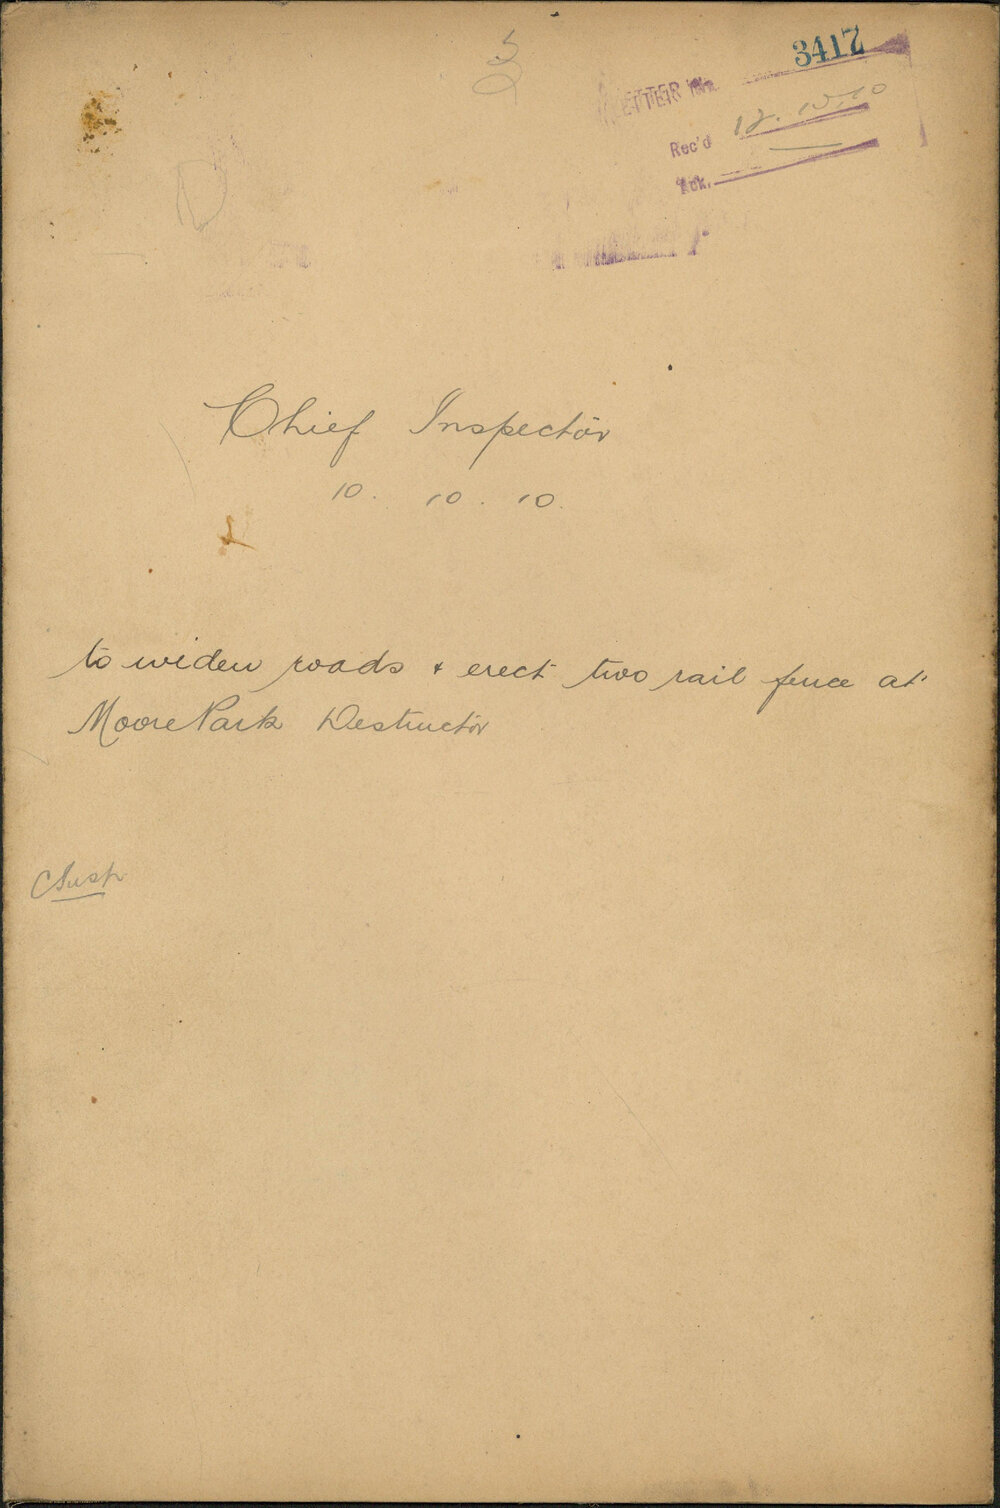 3417
LETTER No.
Rec'd 12.10.10
Ack.
Chief Inspector
10. 10. 10.
to widen roads & erect two rail fence at
Moore Park Destructor